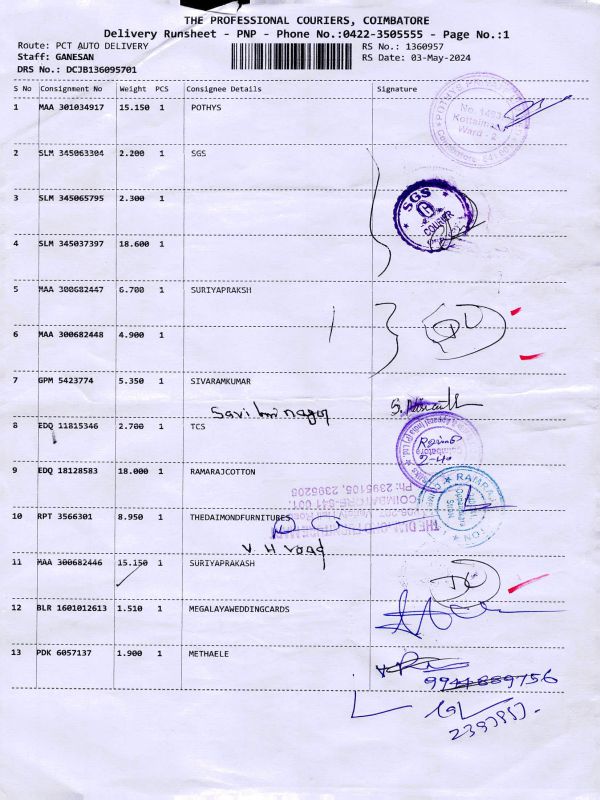 THE PROFESSIONAL COURIERS, COIMBATORE
Delivery Runsheet - PNP - Phone No.:0422-3505555 - Page No.:1
Route: PCT AUTO DELIVERY RS No.: 1360957
Staff: GANESAN RS Date: 03-May-2024
DRS No.: DCJB136095701
S No Consignment No Weight PCS Consignee Details Signature
1 MAA 301034917 15.150 1 POTHYS
2 SLM 345063304 2.200 1 SGS
3 SLM 345065795 2.300 1
SGS
COURIER
4 SLM 345037397 18.600 1
5 MAA 300682447 6.700 1 SURIYAPRAKSH
6 MAA 300682448 4.900 1
7 GPM 5423774 5.350 1 SIVARAMKUMAR
8 EDQ 11815346 2.700 1 TCS
9 EDQ 18128583 18.000 1 RAMARAJCOTTON
Ph: 2395105, 2395205
10 RPT 3566301 8.950 1 THEDAIMONDFURNITURES
V H road
11 MAA 300682446 15.150 1 SURIYAPRAKASH
12 BLR 1601012613 1.510 1 MEGALAYAWEDDINGCARDS
13 PDK 6057137 1.900 1 METHAELE